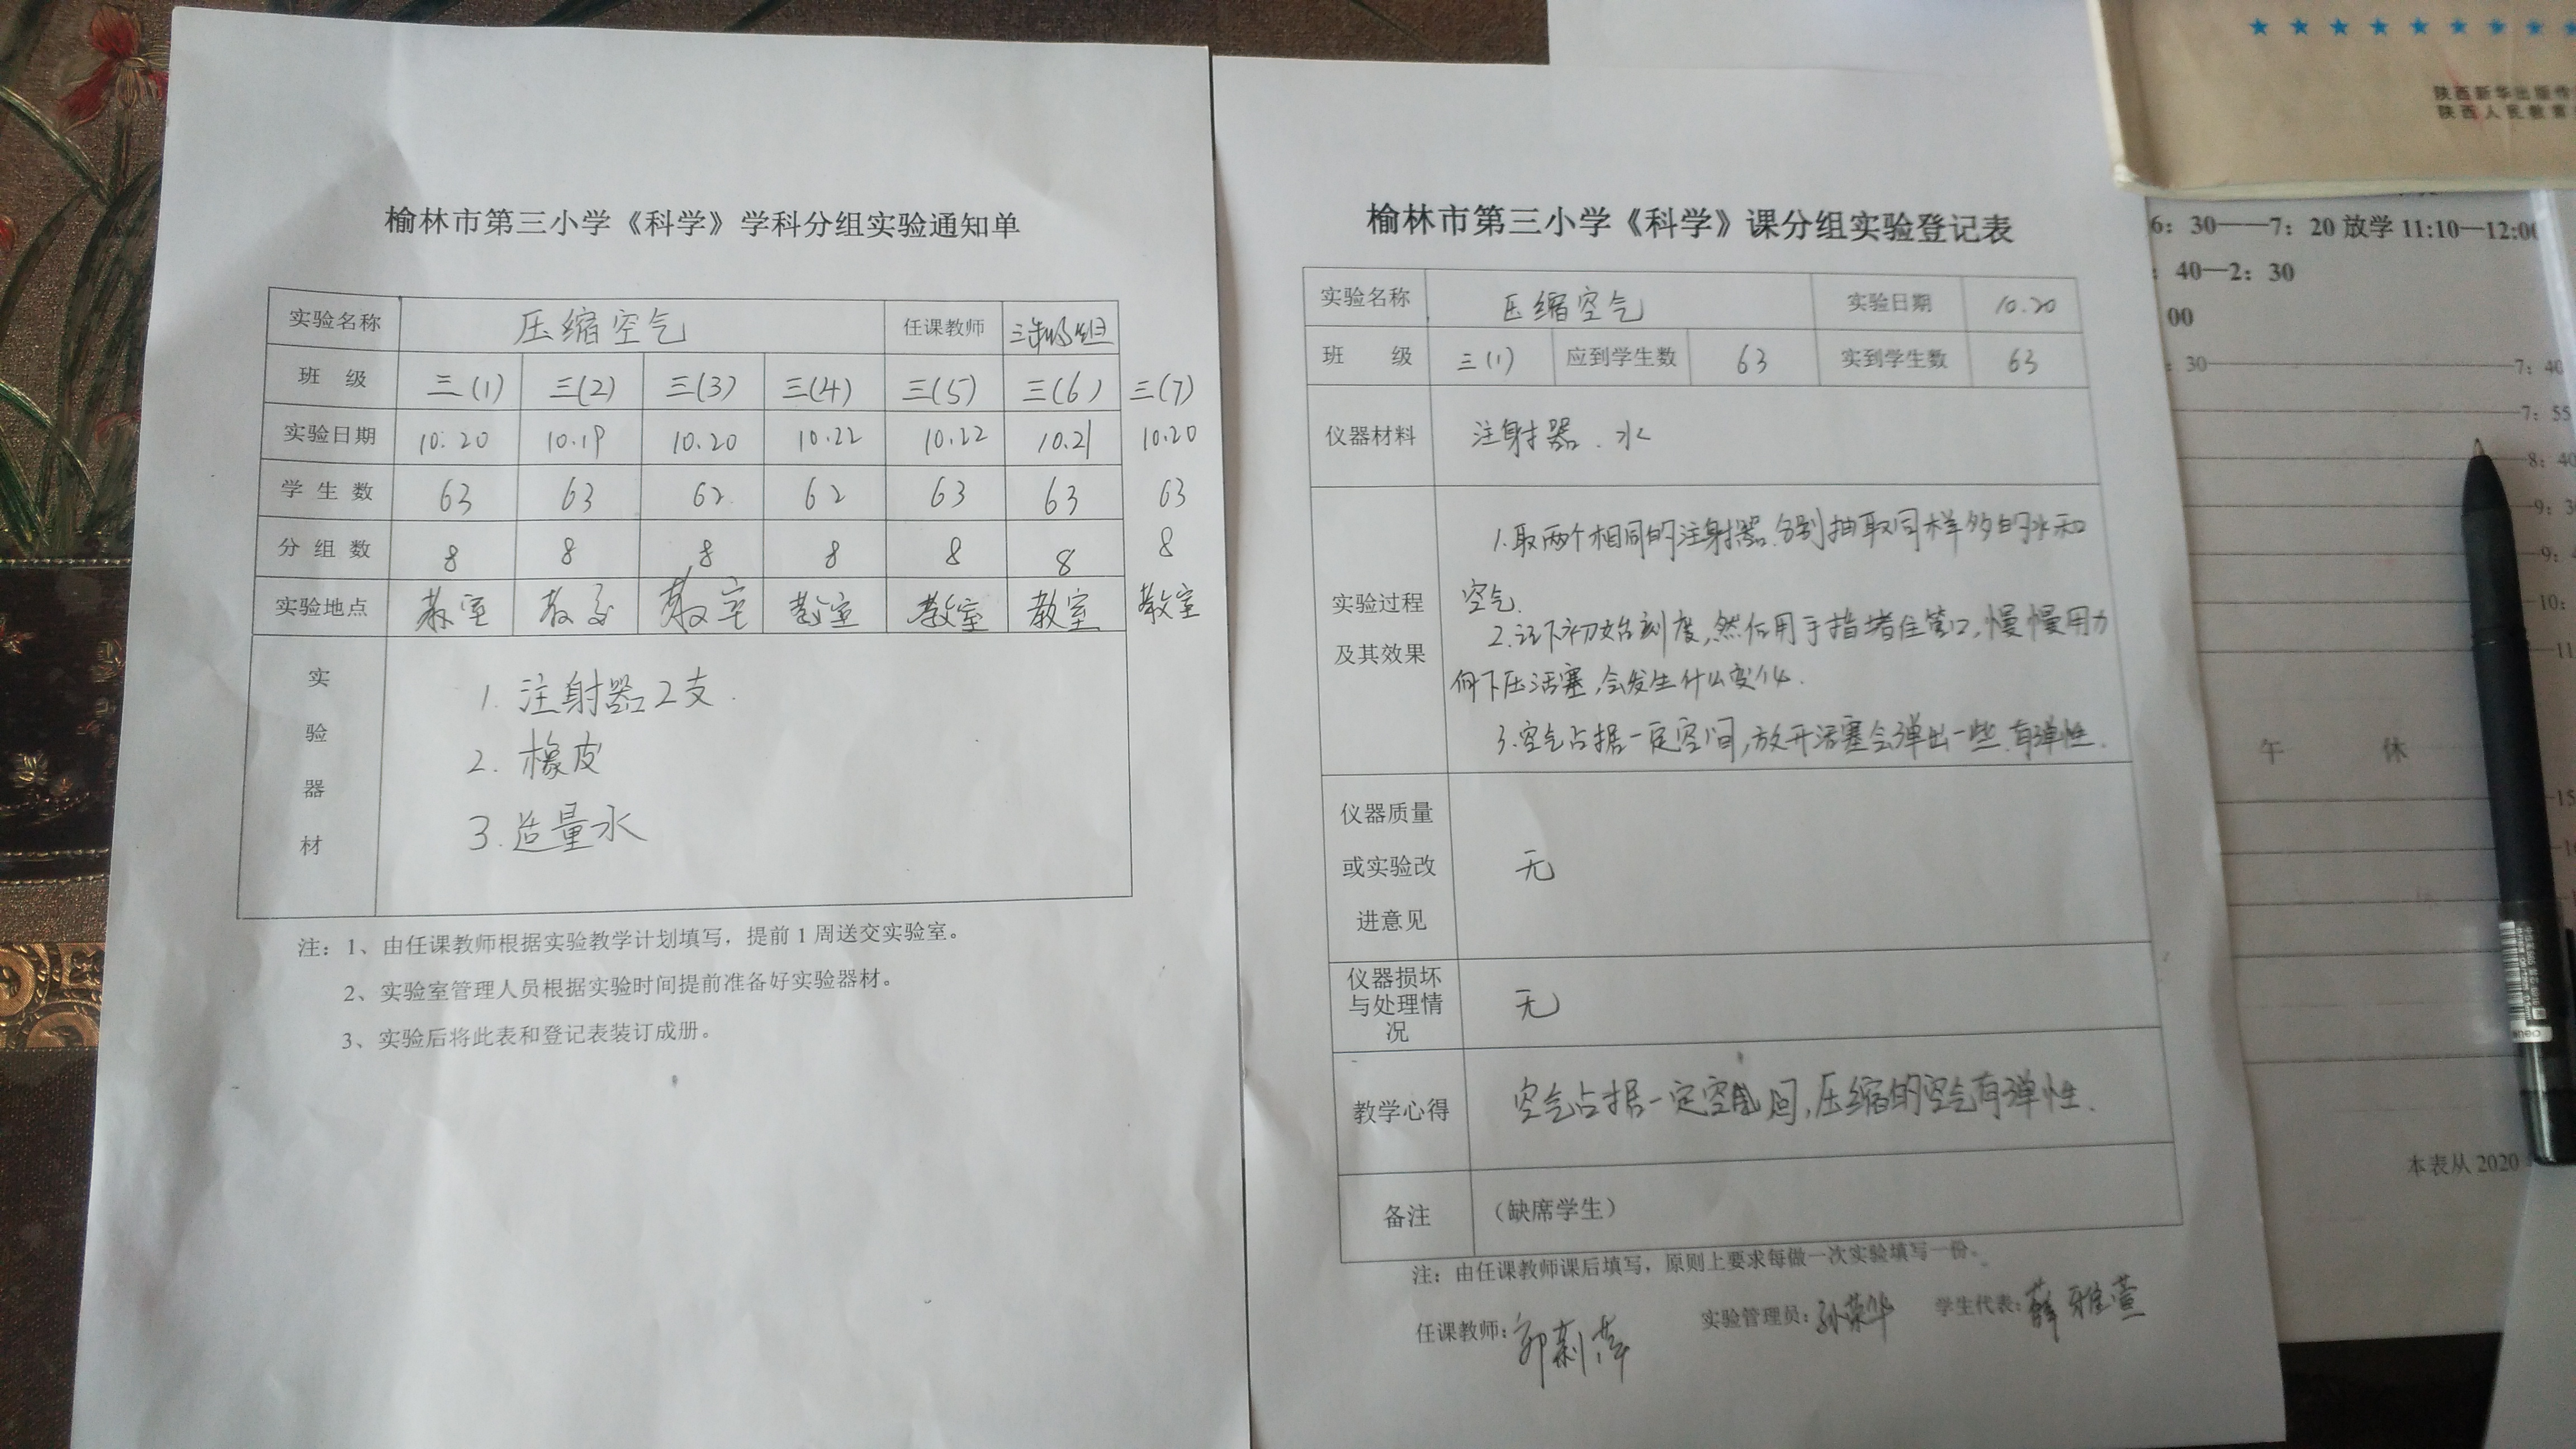 榆林市第三小学《科学》学科分组实验通知单
实验名称 压缩空气 任课教师
班 级 三(1) 三(2) 三(3) 三(4) 三(5) 三(6) 三(7)
实验日期 10.20 10.19 10.20 10.22 10.22 10.21 10.20
学 生 数 63 63 62 62 63 63 63
分 组 数 8 8 8 8 8 8 8
实验地点 教室 教室 教室 教室 教室 教室 教室
实验器材
1. 注射器2支.
2. 橡皮
3. 适量水
注：1、由任课教师根据实验教学计划填写，提前 1 周送交实验室。
2、实验室管理人员根据实验时间提前准备好实验器材。
3、实验后将此表和登记表装订成册。
榆林市第三小学《科学》课分组实验登记表
实验名称 压缩空气 实验日期 10.20
班 级 三(1) 应到学生数 63 实到学生数 63
仪器材料 注射器、水
实验过程
及其效果
1.取两个相同的注射器.分别抽取同样多的水和
空气.
2.记下初始刻度,然后用手指堵住管口,慢慢用力
向下压活塞,会发生什么变化.
3.空气占据一定空间,放开活塞会弹出一些.有弹性.
仪器质量
或实验改
进意见
无
仪器损坏
与处理情
况
无
教学心得 空气占据一定空间,压缩的空气有弹性.
备注 （缺席学生）
注：由任课教师课后填写，原则上要求每做一次实验填写一份。
任课教师: 实验管理员:孙荣华 学生代表:薛雅萱
陕西新华出版传
陕西人民教育
6：30——7：20 放学 11:10—12:00
：40—2：30
00
：30 7：40
7：55
8：40
9：30
9：
10：
11
午 休
15
本表从 2020